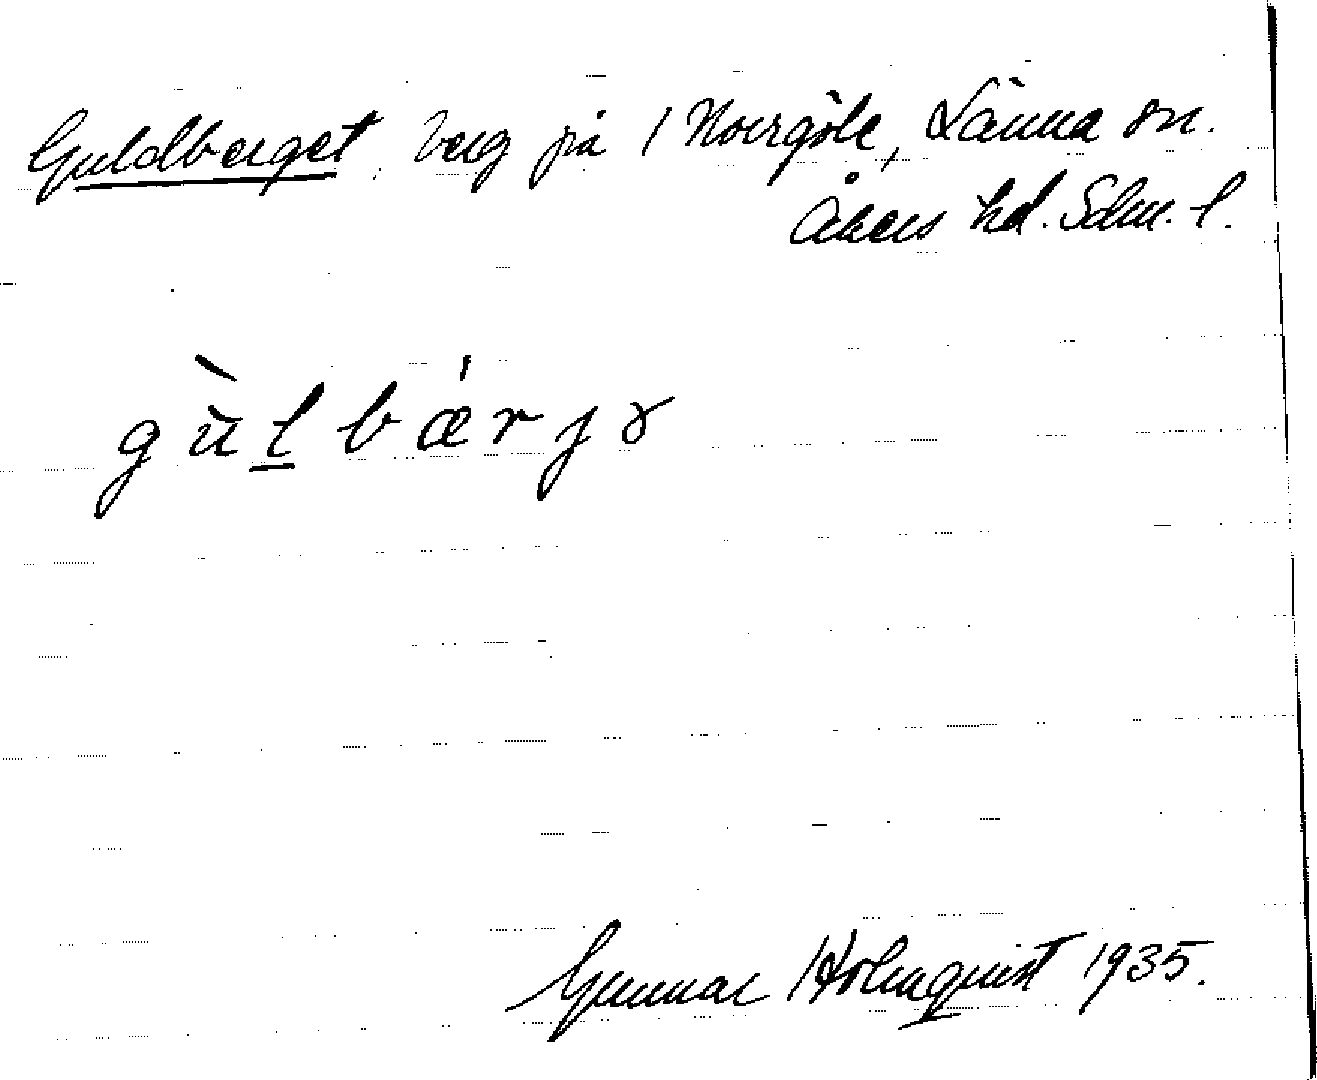 Guldberget, berg på / Norrgöle, Länna sn.
Åkers hd. Sdm. l.
gùl̠bǽrjɤ
Gunnar Holmquist 1935.